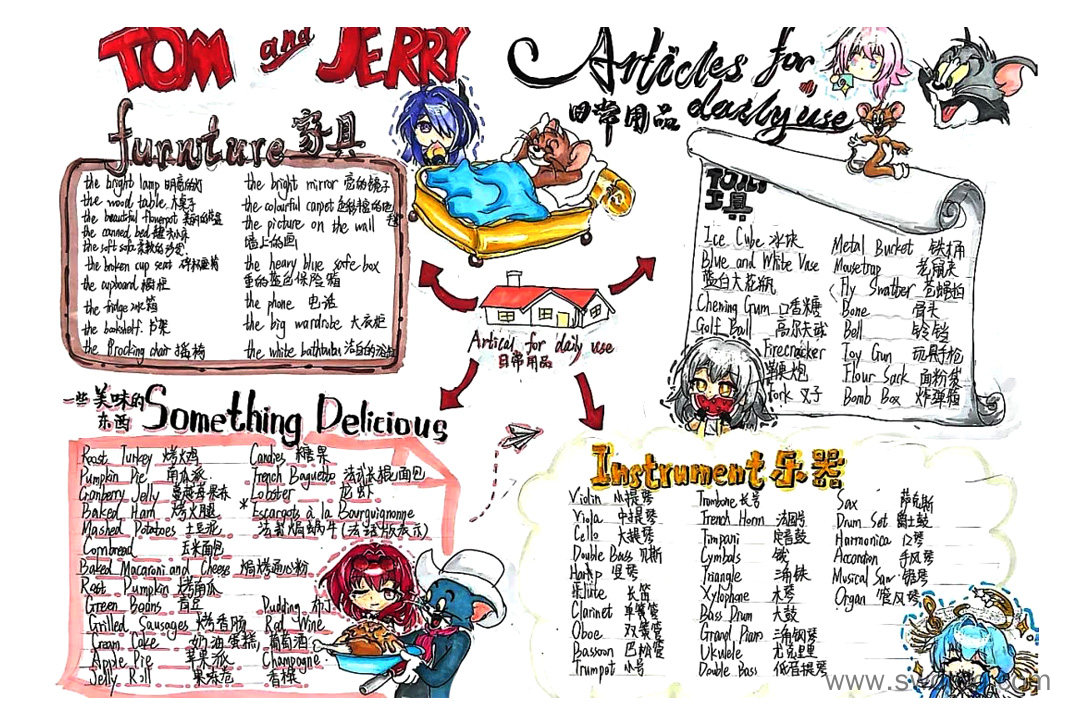 TOM and JERRY
Articles for
日常用品 daily use
furnture 家具
the bright lamp 明亮的灯
the wood table 木桌子
the beautiful flowerpot 美丽的花盆
the canned bed
the soft sofa 柔软的沙发
the broken cup seat
the cupboard 橱柜
the fridge 冰箱
the bookshelf 书架
the Procking chair 摇椅
the bright mirror 亮的镜子
the colourful carpet 色彩
the picture on the wall
墙上的画
the heavy blue safe box
重的蓝色保险箱
the phone 电话
the big wardribe 大衣柜
the white bathbubs 洁白的浴缸
TOOL
工具
Ice Cube 冰块
Blue and White Vase
蓝白大花瓶
Chewing Gum 口香糖
Golf Ball 高尔夫球
Firecracker
鞭炮
fork 叉子
Metal Bucket 铁桶
Mousetrap 老鼠夹
Fly Swatter 苍蝇拍
Bone 骨头
Bell 铃铛
Toy Gun 玩具手枪
Flour Sack 面粉袋
Bomb Box 炸弹箱
Artical for daily use
日常用品
一些美味的
东西
Something Delicious
Roast Turkey 烤火鸡
Pumpkin Pie 南瓜派
Cranberry Jelly 蔓越莓果冻
Baked Ham 烤火腿
Mashed Potatoes 土豆泥
Cornbread 玉米面包
Baked Macaroni and Cheese 焗烤通心粉
Rost Pumpkin 烤南瓜
Green Beans 青豆
Grilled Sausages 烤香肠
Cream Cake 奶油蛋糕
Apple Pie 苹果派
Jelly Roll 果冻卷
Candies 糖果
French Baguetto 法式长棍面包
Lobster 龙虾
*Escargots à la Bourguignonne
法式焗蜗牛
Pudding 布丁
Red Wine
葡萄酒
Champagne
香槟
Instrument 乐器
Violin 小提琴
Viola 中提琴
Cello 大提琴
Double Bass 贝斯
Harp 竖琴
Flute 长笛
Clarinet 单簧管
Oboe 双簧管
Bassoon 巴松管
Trumpet 小号
Trombone 长号
French Horn 法国号
Timpani 定音鼓
Cymbals 镲
Triangle 三角铁
Xylophone 木琴
Bass Drum 大鼓
Grand Piano 三角钢琴
Ukulele 尤克里里
Double Bass 低音提琴
Sax 萨克斯
Drum Set 爵士鼓
Harmonica 口琴
Accordion 手风琴
Musical Saw 锯琴
Organ 管风琴